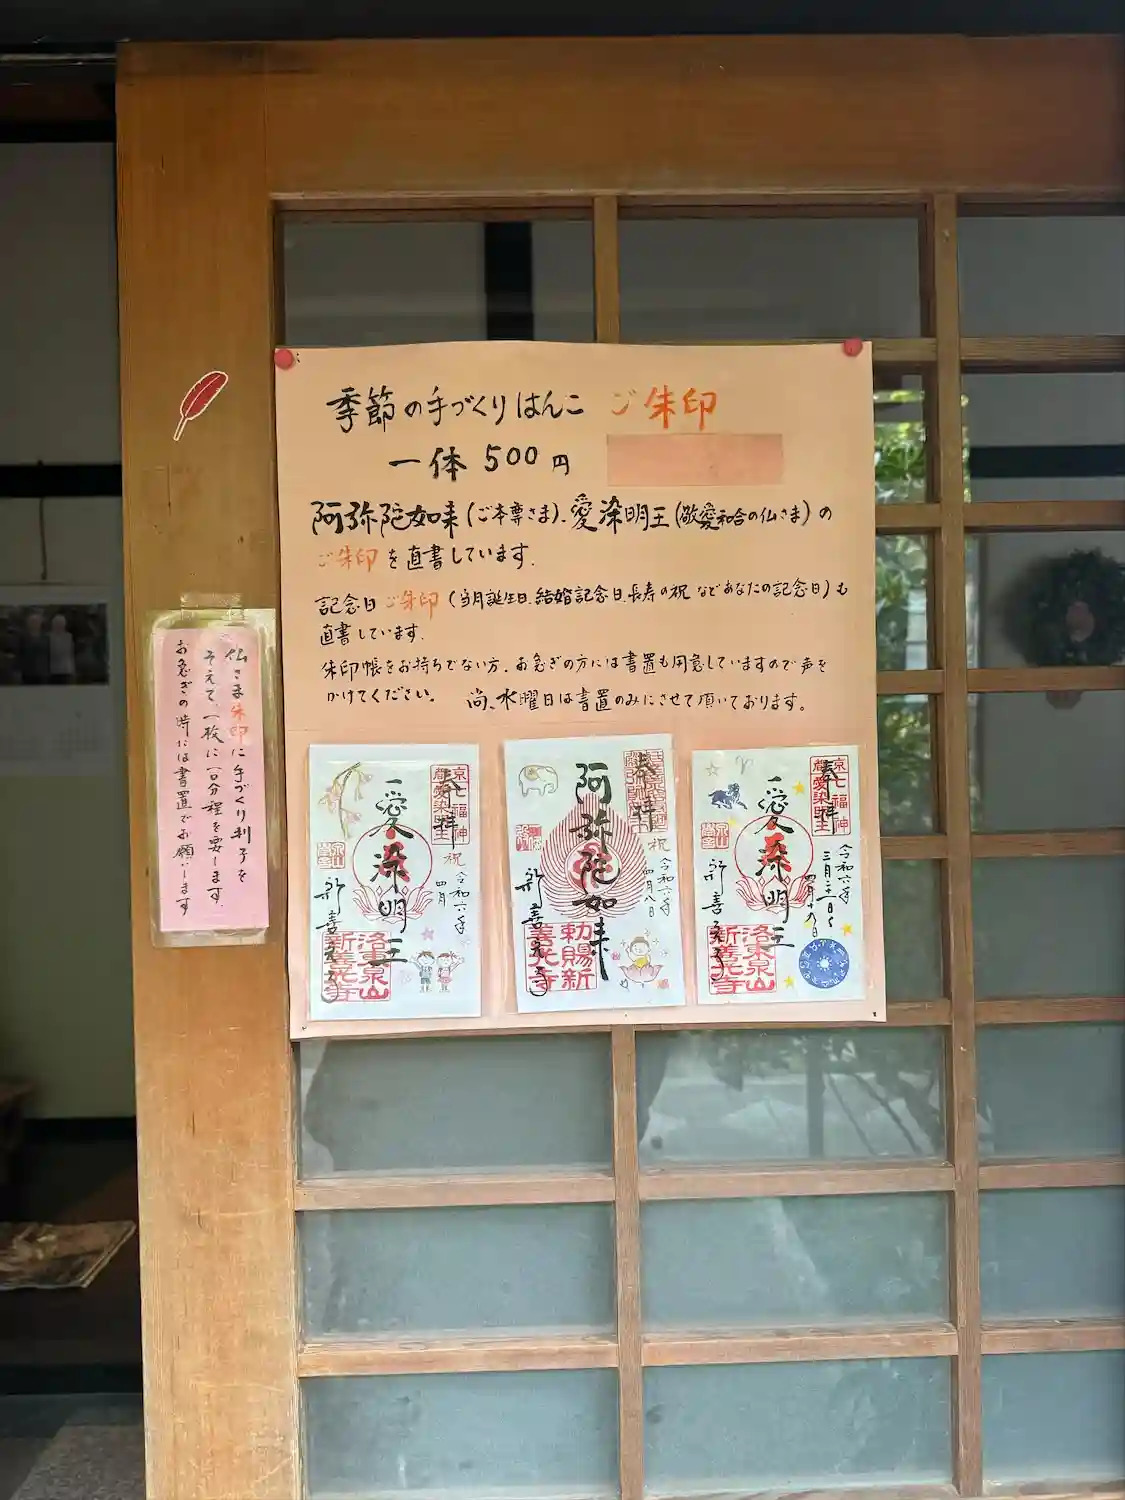 季節の手づくりはんこ ご朱印
一体 500円
阿弥陀如来(ご本尊さま)、愛染明王(敬愛和合の仏さま)の
ご朱印を直書しています。
記念日ご朱印(当月誕生日、結婚記念日、長寿の祝などあなたの記念日)も
直書しています。
朱印帳をお持ちでない方、お急ぎの方には書置も用意していますので声を
かけてください。 尚、水曜日は書置のみにさせて頂いております。
仏さま朱印に手づくり判子を
そえて、一枚に一〇分程を要します。
お急ぎの時には書置でお願いします
京七福神
奉拝
祝
令和六年
四月
愛染明王
新善光寺
洛東泉山
新善光寺
奉拝
祝
令和六年
四月八日
阿弥陀如来
新善光寺
勅賜新
善光寺
京七福神
奉拝
令和六年
三月二十一日〜
四月十九日
愛染明王
新善光寺
洛東泉山
新善光寺